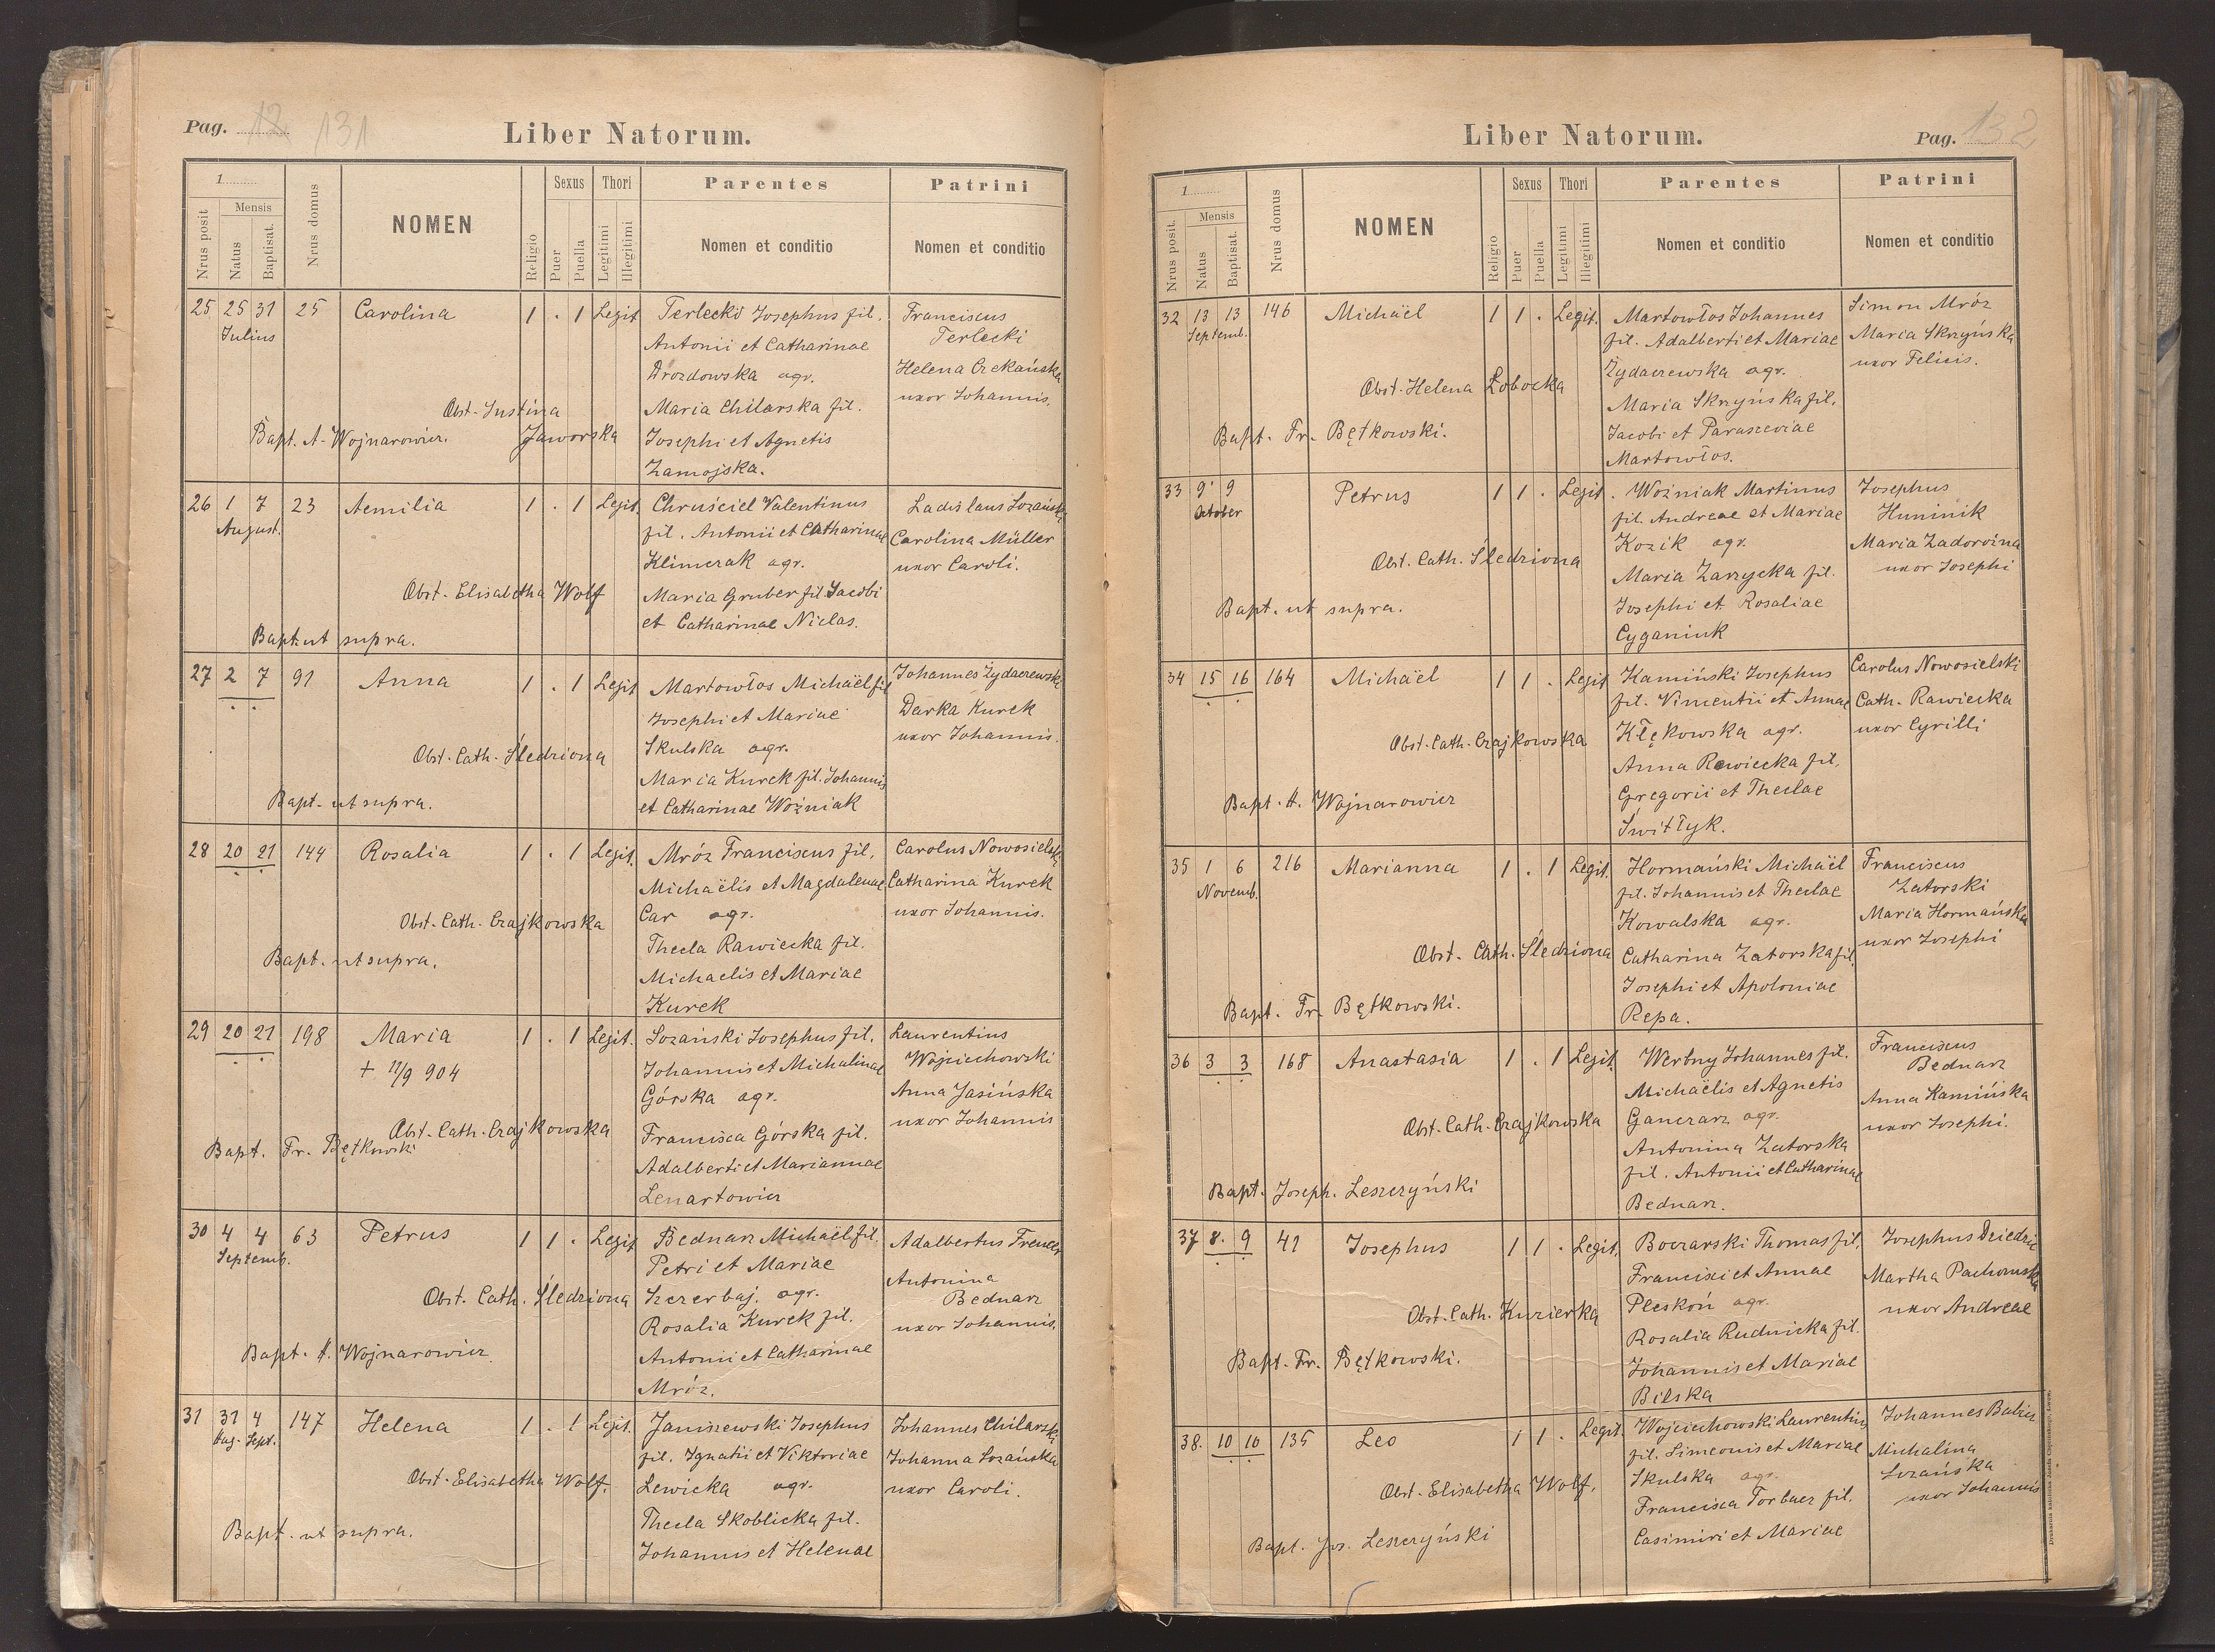 Pag. 12 131
Liber Natorum.
1
Nrus posit
Mensis
Natus
Baptisat.
Nrus domus
NOMEN
Religio
Sexus
Puer
Puella
Thori
Legitimi
Illegitimi
Parentes
Nomen et conditio
Patrini
Nomen et conditio
25 25 31 25 Carolina 1 . 1 Legit.
Julius
Terlecki Josephus fil.
Antonii et Catharinae
Drozdowska agr.
Maria Chilarska fil.
Josephi et Agnetis
Zamojska.
Franciscus
Terlecki
Helena Czekańska
uxor Johannis.
Obst. Justina
Jaworska
Bapt. A. Wojnarowicz.
26 1 7 23 Aemilia 1 . 1 Legit.
August.
Chruściel Valentinus
fil. Antonii et Catharinae
Klimczak agr.
Maria Gruber fil. Jacobi
et Catharinae Niclas.
Ladislaus Lozański
Carolina Müller
uxor Caroli.
Obst. Elisabetha Wolf
Bapt. ut supra.
27 2 7 91 Anna 1 . 1 Legit
Martowłos Michaël fil
Josephi et Mariae
Skulska agr.
Maria Kurek fil. Johannis
et Catharinae Woźniak
Johannes Żydaczewski
Darka Kurek
uxor Johannis.
Obst. Cath. Śledziona
Bapt. ut supra.
28 20 21 144 Rosalia 1 . 1 Legit.
Mróz Franciscus fil.
Michaëlis et Magdalenae
Car agr.
Thecla Rawiecka fil.
Michaelis et Mariae
Kurek
Carolus Nowosielski
Catharina Kurek
uxor Johannis.
Obst. Cath. Czajkowska
Bapt. ut supra.
29 20 21 198 Maria 1 . 1 Legit.
+ 12/9 904
Lozański Josephus fil.
Johannis et Michalinae
Górska agr.
Francisca Górska fil.
Adalberti et Mariannae
Lenartowicz
Laurentius
Wojciechowski
Anna Jasińska
uxor Johannis
Obst. Cath. Czajkowska
Bapt. Fr. Bętkowski
30 4 4 63 Petrus 1 1 . Legit
Septemb.
Bednarz Michaël fil.
Petri et Mariae
Szczerbaj. agr.
Rosalia Kurek fil.
Antonii et Catharinae
Mróz.
Adalbertus
Antonina
Bednarz
uxor Johannis.
Obst. Cath. Śledziona
Bapt. A. Wojnarowicz
31 31 4 147 Helena 1 . 1 Legit.
Aug. Sept.
Janiszewski Josephus
fil. Ignatii et Viktoriae
Lewicka agr.
Thecla Skoblicka fil.
Johannis et Helenae
Johannes Chilarski
Johanna Lozańska
uxor Caroli.
Obst. Elisabetha Wolf.
Bapt. ut supra.
Liber Natorum.
Pag. 132
1
Nrus posit.
Mensis
Natus
Baptisat.
Nrus domus
NOMEN
Religio
Sexus
Puer
Puella
Thori
Legitimi
Illegitimi
Parentes
Nomen et conditio
Patrini
Nomen et conditio
32 13 13 146 Michaël 1 1 . Legit.
Septemb.
Martowłos Johannes
fil. Adalberti et Mariae
Żydaczewska agr.
Maria Skrzyńska fil.
Jacobi et Parasceviae
Martowłos.
Simon Mróz
Maria Skrzyńska
uxor Felicis.
Obst. Helena Łobocka
Bapt. Fr. Bętkowski.
33 9 9 Petrus 1 1 . Legit.
October
Woźniak Martinus
fil. Andreae et Mariae
Kozik agr.
Maria Zarzycka fil.
Josephi et Rosaliae
Cyganiuk
Josephus
Huninik
Maria Zadorożna
uxor Josephi
Obst. Cath. Śledziona
Bapt. ut supra.
34 15 16 164 Michaël 1 1 . Legit
Kamiński Josephus
fil. Vincentii et Annae
Kłękowska agr.
Anna Rawiecka fil.
Gregorii et Theclae
Świtłyk.
Carolus Nowosielski
Cath. Rawiecka
uxor Cyrilli
Obst. Cath. Czajkowska
Bapt. A. Wojnarowicz
35 1 6 216 Marianna 1 . 1 Legit.
Novemb.
Hormański Michaël
fil. Johannis et Theclae
Kowalska agr.
Catharina Zatorska fil.
Josephi et Apoloniae
Repa.
Franciscus
Zatorski
Maria Hormańska
uxor Josephi
Obst. Cath. Śledziona
Bapt. Fr. Bętkowski.
36 3 3 168 Anastasia 1 . 1 Legit.
Werbny Johannes fil.
Michaëlis et Agnetis
Ganczarz agr.
Antonina Zatorska
fil. Antonii et Catharinae
Bednarz.
Franciscus
Bednarz
Anna Kamińska
uxor Josephi.
Obst. Cath. Czajkowska
Bapt. Joseph. Leszczyński
37 8. 9 41 Josephus 1 1 . Legit.
Boczarski Thomas fil.
Francisci et Annae
Pleskoń agr.
Rosalia Rudnicka fil.
Johannis et Mariae
Bilska
Josephus Dziedzic
Martha Pachowska
uxor Andreae
Obst. Cath. Kurierka
Bapt. Fr. Bętkowski.
38. 10 10 135 Leo 1 1 . Legit.
Wojciechowski Laurentius
fil. Simeonis et Mariae
Skulska agr.
Francisca Torbacz fil.
Casimiri et Mariae
Johannes
Michalina
Lozańska
uxor Johannis
Obst. Elisabetha Wolf.
Bapt. Jos. Leszczyński